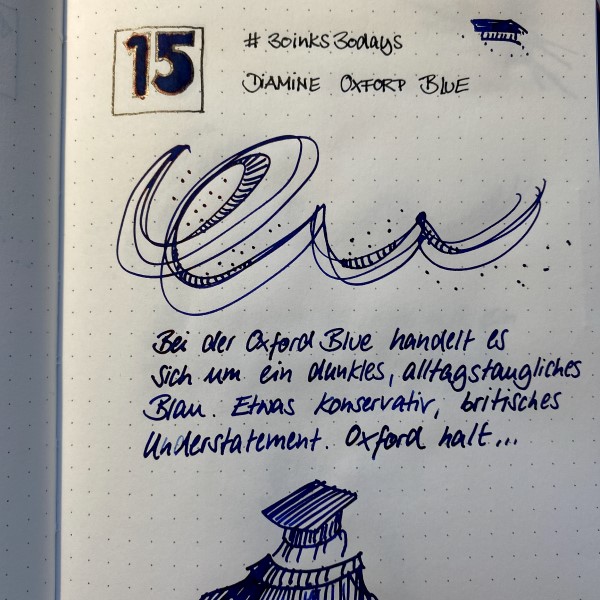 15
# 30inks30days
DIAMINE OXFORD BLUE
Bei der Oxford Blue handelt es
sich um ein dunkles, alltagstaugliches
Blau. Etwas konservativ, britisches
Understatement. Oxford halt...